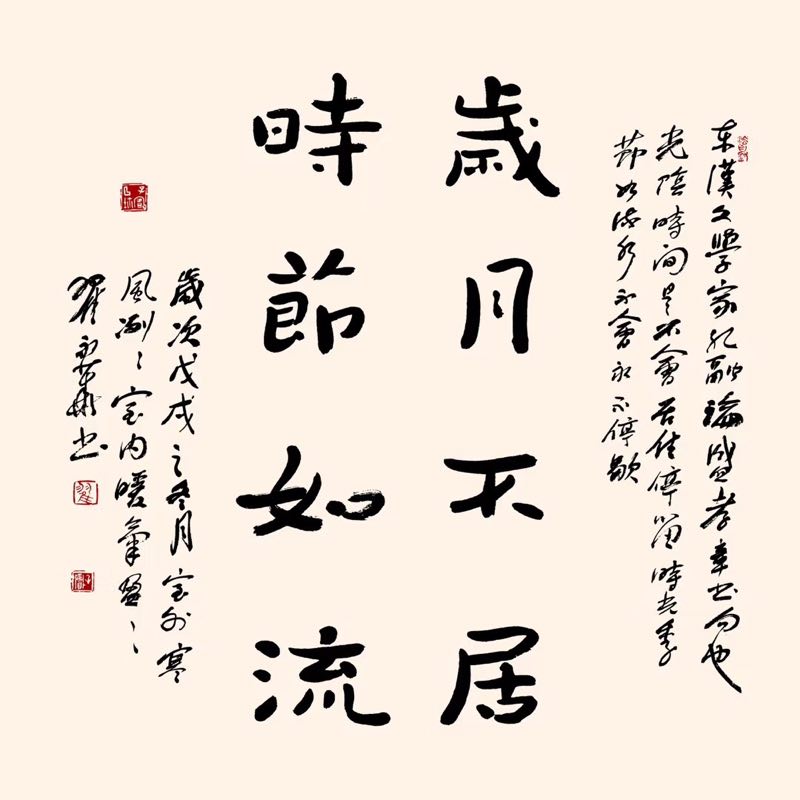 东漢文學家孔融論盛孝章书句也
光陰時间是不會居住停留時光季
節如流水不會永不停歇
歲月不居
時節如流
歲次戊戌之冬月室外寒
風冽冽室内暖氣盈盈
翟永彬书